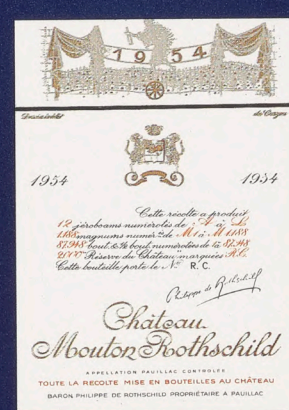 1954
Dessin inédit de Carzou
1954 1954
Cette récolte a produit
12 jéroboams numérotés de A à L
1.188 magnums numér.ˢ de M1 à M1188
87.948 bout. & ½ bout. numérotées de 1 à 87.948
2000 "Réserve du Château" marquées R.C.
Cette bouteille porte le Nº R.C.
Philippe de Rothschild
Château
Mouton Rothschild
APPELLATION PAUILLAC CONTROLÉE
TOUTE LA RECOLTE MISE EN BOUTEILLES AU CHÂTEAU
BARON PHILIPPE DE ROTHSCHILD PROPRIÉTAIRE A PAUILLAC